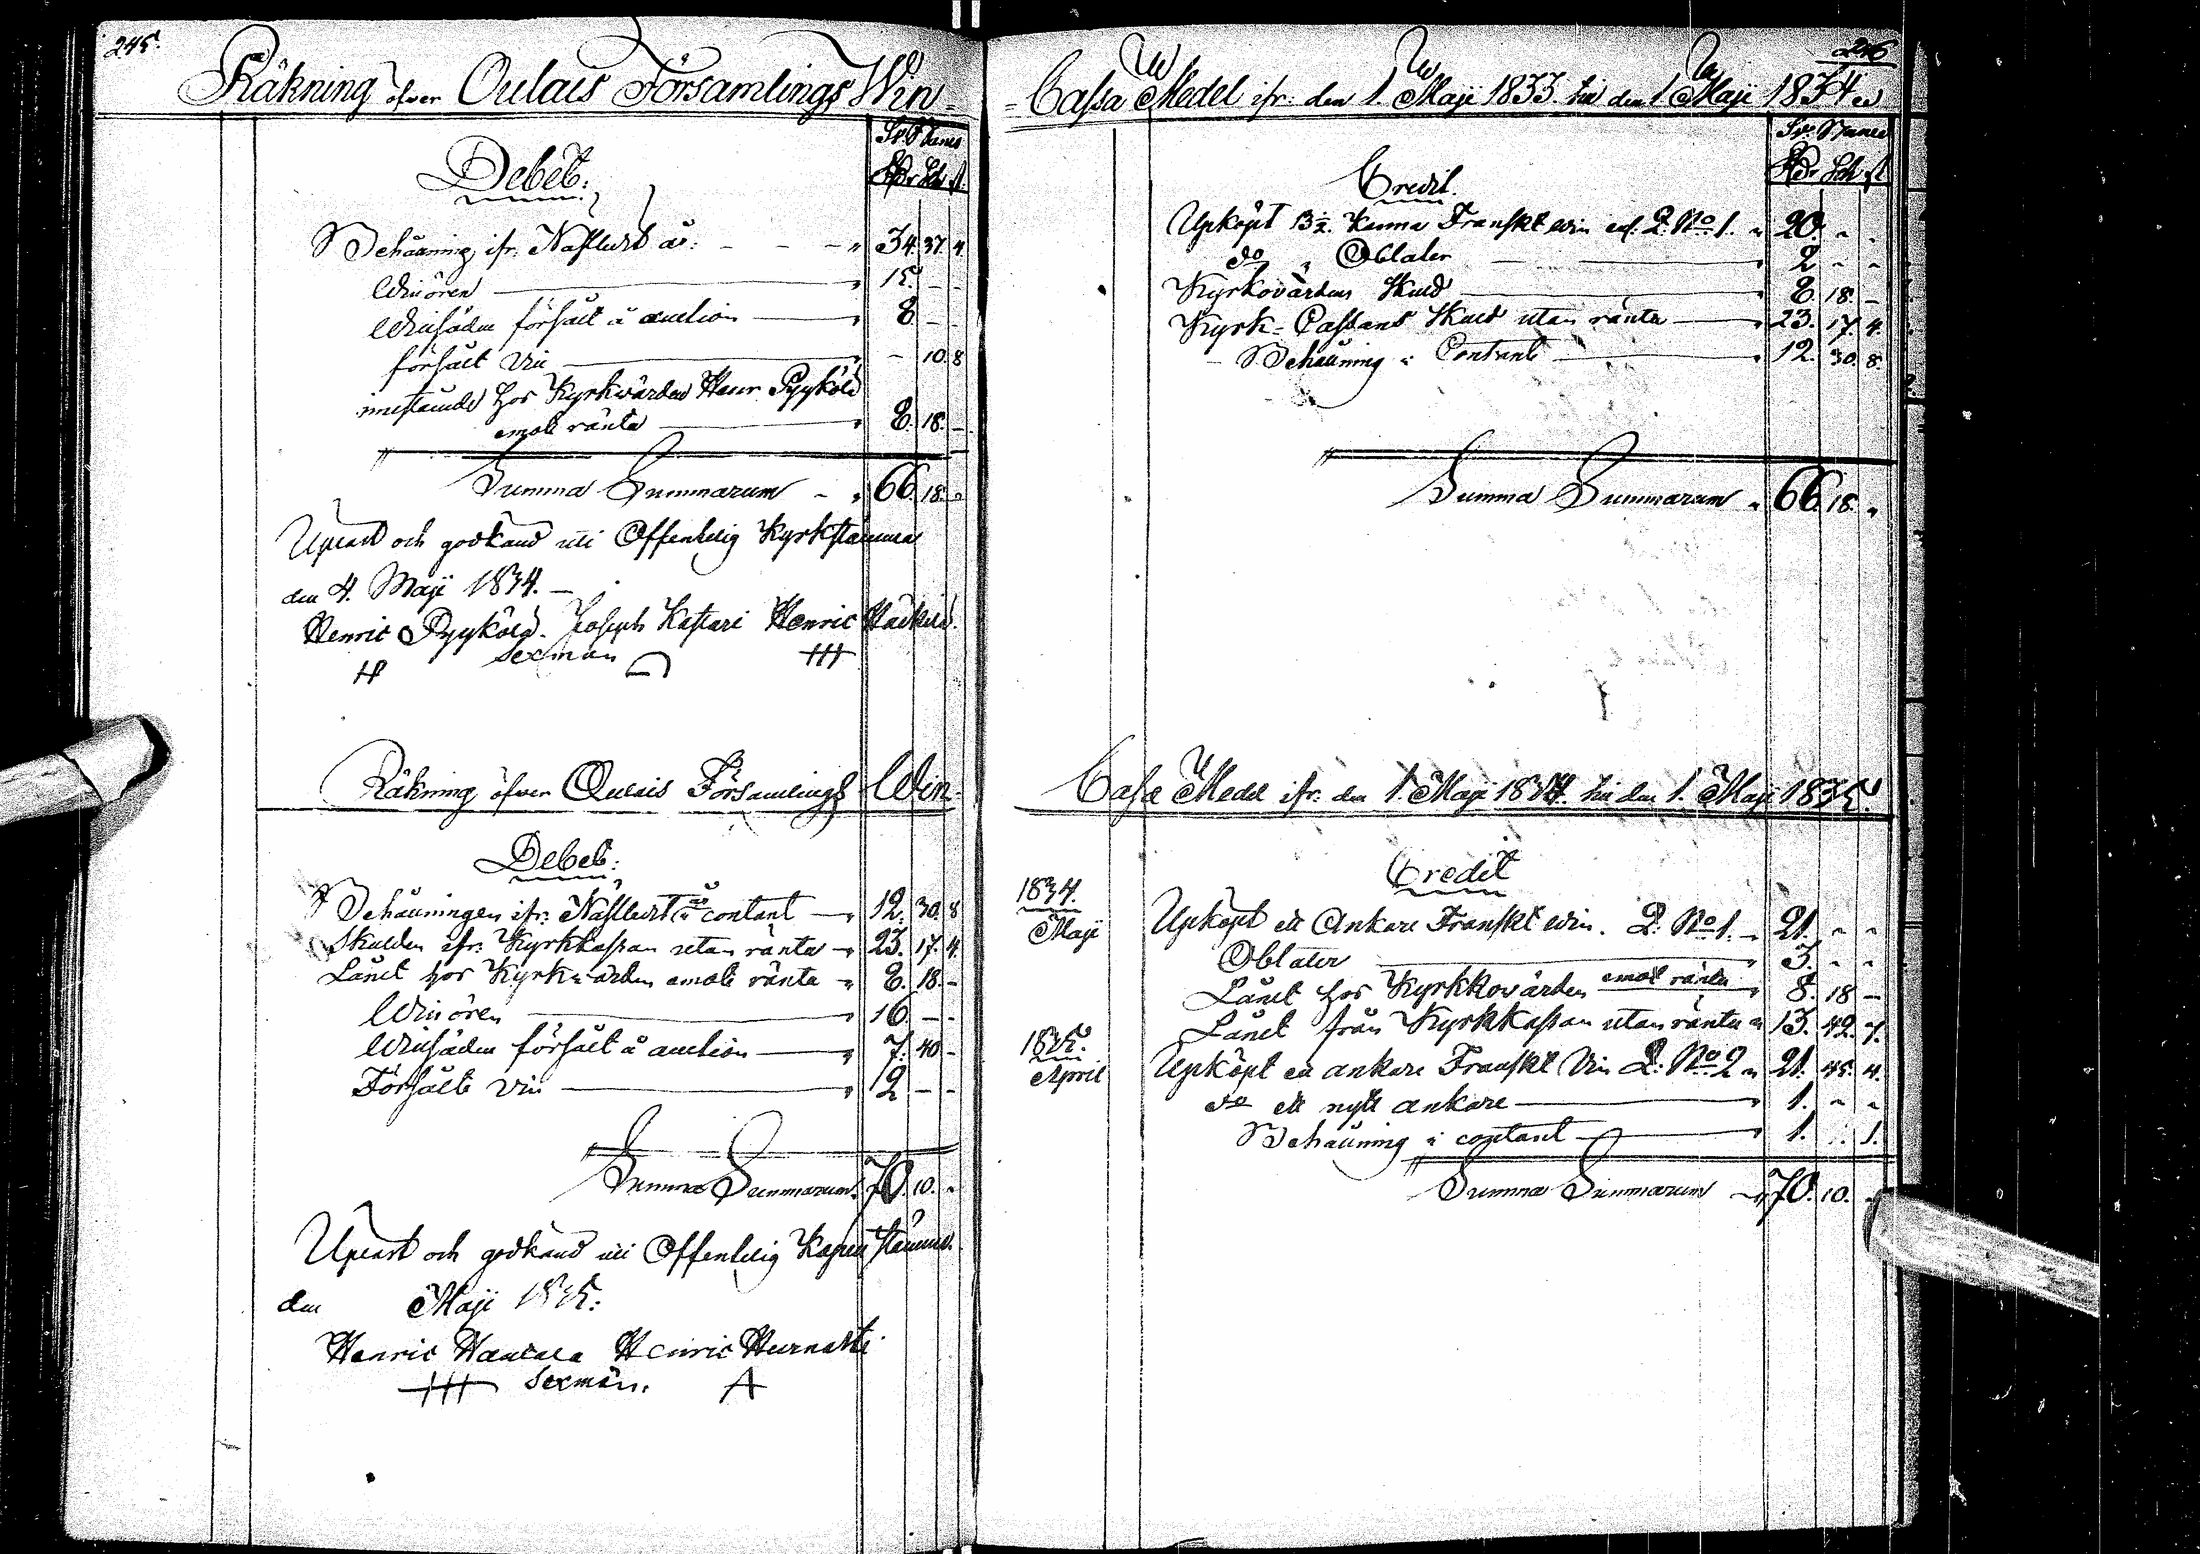 245.
Räkning öfver Oulais Församlings Win-
Sv: Rinces
Rdr Sch st.
Debet:
Behåning ifr. Näfledit år: - - - " 34. 37. 4
Winören " 15. - -
Winsäden försålt å auction " 8 - -
försålt Vin " - 10 8
innestående hos Kyrkvärden Henr. Pyykölä
emot ränta " 8. 18. -
Summa Summarum - " 66. 18. "
Upläst och godkänd uti Offentelig Kyrkstämma
den 4. Maji 1834. -
Henric Pyykölä. Joseph Kastari Henric
Sexmän
Räkning öfver Oulais Församlings Win-
Debet:
Behåningen ifr: Näfledit år i contant " 12. 30. 8
Skulden ifr: Kyrkkassan utan ränta " 23. 17. 4
Lånet hos Kyrkvärden emot ränta " 8. 18. -
Winören " 16. - -
Winsäden försålt å auction " 7. 40 -
Försålt Vin " 2 - -
Summa Summarum 70. 10. "
Upläst och godkänd uti Offentelig stämma.
den Maji 1835.
Henric Henric
Sexmän.
246
Cassa Medel ifr: den 1. Maji 1833. till den 1. Maji 1834.
Rdr Sch st
Credit.
Upköpt 13½. Kanna Franskt win enl. L: No 1. " 20. " "
do " Oblater " 2 " "
Kyrkovärdens Skuld " 8. 18. -
Kyrk-Cassans Skuld utan ränta " 23. 17. 4.
Behåning i Contant " 12. 30. 8.
Summa Summarum " 66. 18. "
Cassa Medel ifr: den 1. Maji 1834. till den 1. Maji 1835.
Credit
1834.
Maji Upköpt ett Ankare Franskt win. L: No 1. " 21. " "
Oblater " 3. " "
Lånet hos Kyrkkovärden emot ränta " 8. 18 -
Lånet från Kyrkkassan utan ränta " 13. 42. 7.
1835.
April Upköpt ett ankare Franskt Vin L: No 2 " 21. 45. 4.
do ett nytt ankare " 1. " "
Behåning i contant " 1. . . 1.
Summa Summarum " 70. 10. "